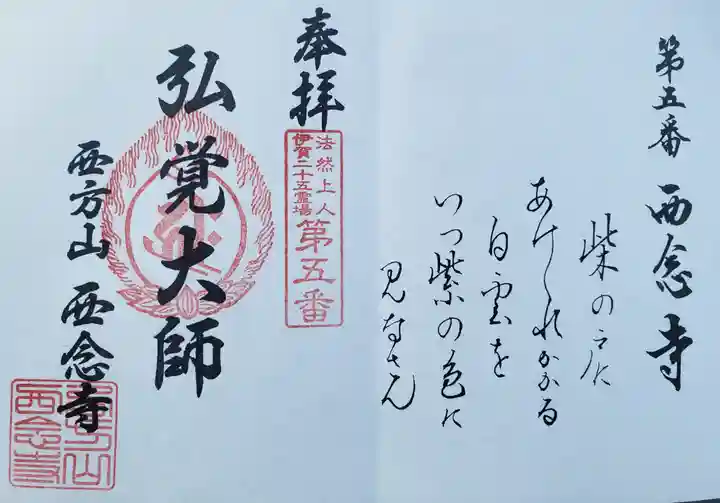 第五番 西念寺
柴の戸に
あけくれかかる
白雲を
いつ紫の色に
見なさん
奉拝
法然上人
伊賀二十五霊場
第五番
弘覚大師
西方山 西念寺
西念寺